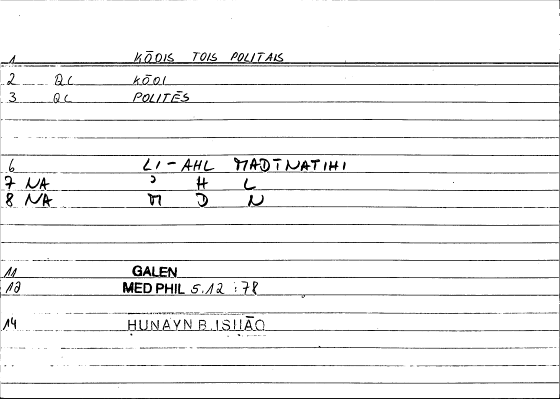 1 KŌOIS TOIS POLITAIS
2 QC KŌOI
3 QC POLITĒS
6 LI-AHL MADĪNATIHI
7 NA ʾ H L
8 NA M D N
11 GALEN
13 MED PHIL 5.12 :78
14 HUNAYN B.ISHĀQ